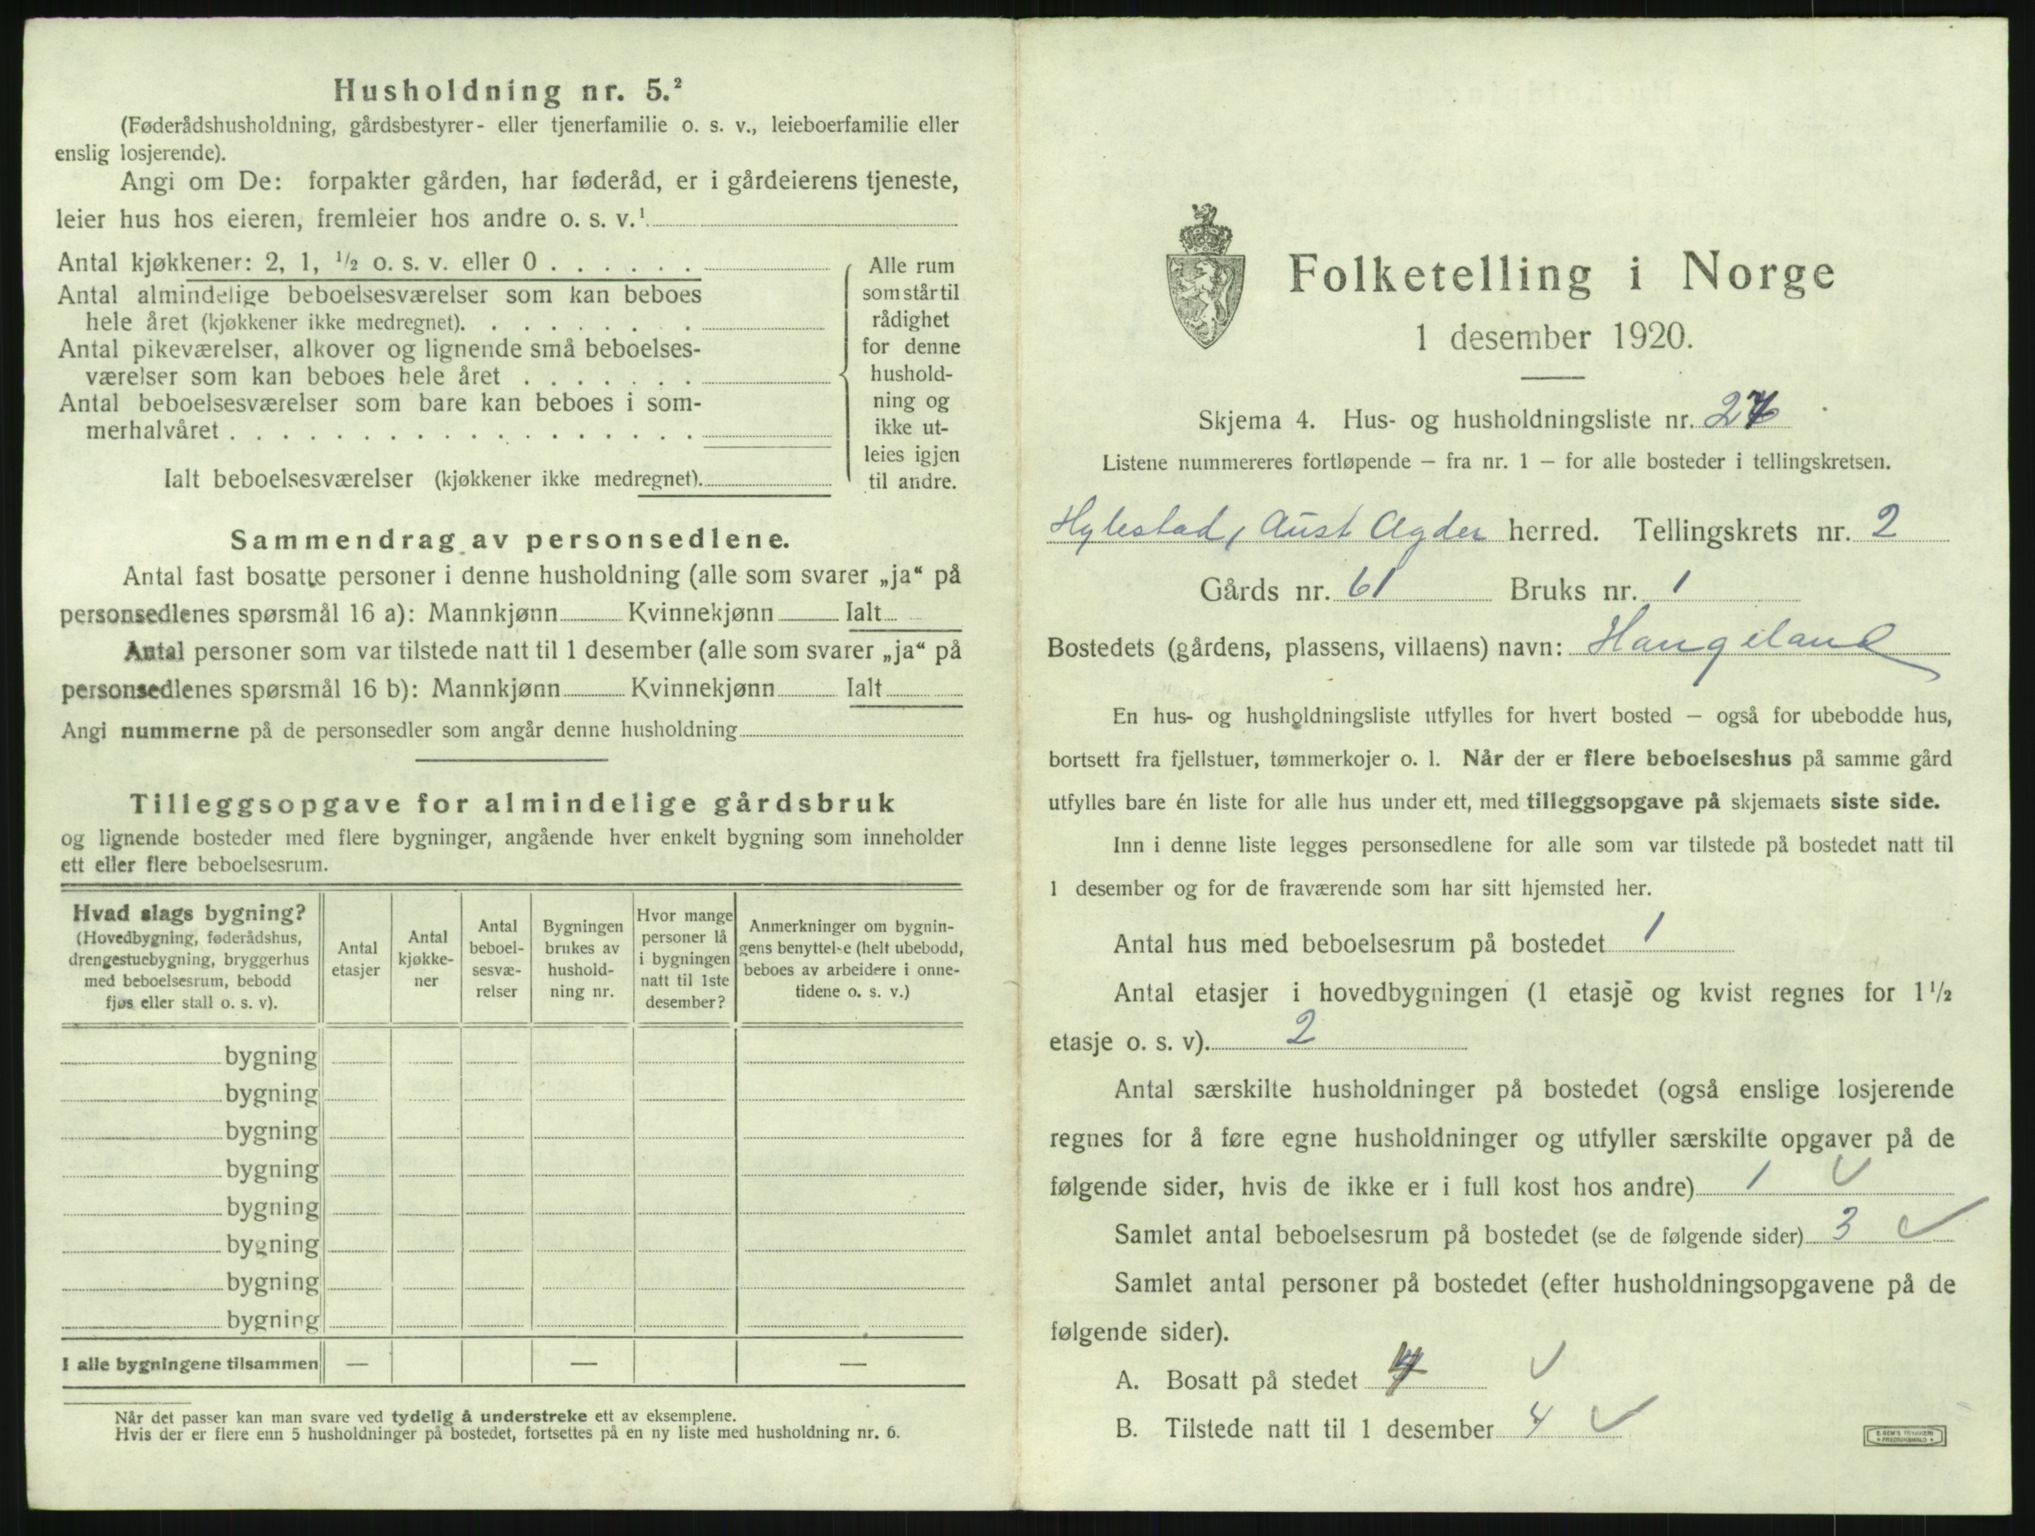 Husholdning nr. 5.²
(Føderådshusholdning, gårdsbestyrer- eller tjenerfamilie o. s. v., leieboerfamilie eller
enslig losjerende).
Angi om De: forpakter gården, har føderåd, er i gårdeierens tjeneste,
leier hus hos eieren, fremleier hos andre o. s. v.¹
Antal kjøkkener: 2, 1, ½ o. s. v. eller 0 . . . . . .
Antal almindelige beboelsesværelser som kan beboes
hele året (kjøkkener ikke medregnet). . . . . . . . .
Antal pikeværelser, alkover og lignende små beboelses-
værelser som kan beboes hele året . . . . . . .
Antal beboelsesværelser som bare kan beboes i som-
merhalvåret . . . . . . . . . . . . . . . . . .
Ialt beboelsesværelser (kjøkkener ikke medregnet).
Alle rum
som står til
rådighet
for denne
hushold-
ning og
ikke ut-
leies igjen
til andre.
Sammendrag av personsedlene.
Antal fast bosatte personer i denne husholdning (alle som svarer „ja“ på
personsedlenes spørsmål 16 a): Mannkjønn Kvinnekjønn Ialt
Antal personer som var tilstede natt til 1 desember (alle som svarer „ja“ på
personsedlenes spørsmål 16 b): Mannkjønn Kvinnekjønn Ialt
Angi nummerne på de personsedler som angår denne husholdning
Tilleggsopgave for almindelige gårdsbruk
og lignende bosteder med flere bygninger, angående hver enkelt bygning som inneholder
ett eller flere beboelsesrum.
Hvad slags bygning?
(Hovedbygning, føderådshus,
drengestuebygning, bryggerhus
med beboelsesrum, bebodd
fjøs eller stall o. s. v).
Antal
etasjer
Antal
kjøkke-
ner
Antal
beboel-
sesvæ-
relser
Bygningen
brukes av
hushold-
ning nr.
Hvor mange
personer lå
i bygningen
natt til 1ste
desember?
Anmerkninger om bygnin-
gens benyttelse (helt ubebodd,
beboes av arbeidere i onne-
tidene o. s. v.)
bygning
bygning
bygning
bygning
bygning
bygning
bygning
bygning
I alle bygningene tilsammen — — —
Når det passer kan man svare ved tydelig å understreke ett av eksemplene.
Hvis der er flere enn 5 husholdninger på bostedet, fortsettes på en ny liste med husholdning nr. 6.
Folketelling i Norge
1 desember 1920.
Skjema 4. Hus- og husholdningsliste nr.
Listene nummereres fortløpende – fra nr. 1 – for alle bosteder i tellingskretsen.
Hylestad, Aust Agder herred. Tellingskrets nr. 2
Gårds nr. 61 Bruks nr. 1
Bostedets (gårdens, plassens, villaens) navn: Haugeland
En hus- og husholdningsliste utfylles for hvert bosted – også for ubebodde hus,
bortsett fra fjellstuer, tømmerkojer o. l. Når der er flere beboelseshus på samme gård
utfylles bare én liste for alle hus under ett, med tilleggsopgave på skjemaets siste side.
Inn i denne liste legges personsedlene for alle som var tilstede på bostedet natt til
1 desember og for de fraværende som har sitt hjemsted her.
Antal hus med beboelsesrum på bostedet 1
Antal etasjer i hovedbygningen (1 etasje og kvist regnes for 1½
etasje o. s. v). 2
Antal særskilte husholdninger på bostedet (også enslige losjerende
regnes for å føre egne husholdninger og utfyller særskilte opgaver på de
følgende sider, hvis de ikke er i full kost hos andre) 1 ✓
Samlet antal beboelsesrum på bostedet (se de følgende sider) 3 ✓
Samlet antal personer på bostedet (efter husholdningsopgavene på de
følgende sider).
A. Bosatt på stedet ✓
B. Tilstede natt til 1 desember 4 ✓